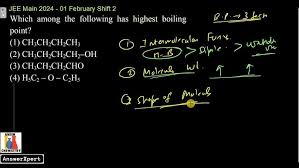 JEE Main 2024 - 01 February Shift 2
Which among the following has highest boiling
point?
(1) CH₃CH₂CH₂CH₃
(2) CH₃CH₂CH₂CH₂–OH
(3) CH₃CH₂CH₂CHO
(4) H₅C₂ – O – C₂H₅
B.P. → 3 fact
① Intermolecular Force
H-B > Dipole >
② Molecular Wt. ↑ ↑
③ Shape of Molecule
AnswerXpert